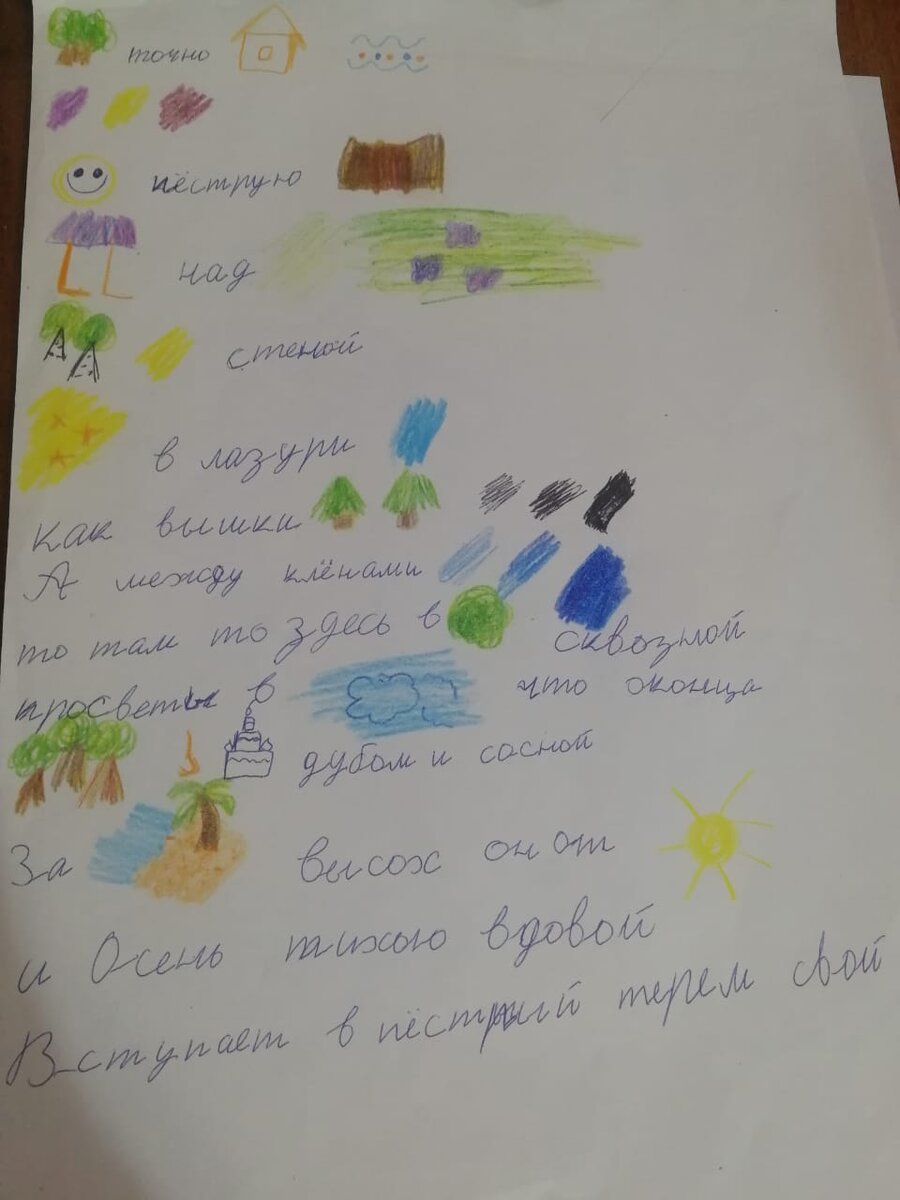 точно
пёструю
над
стеной
в лазури
как вышки
А между клёнами
то там то здесь в сквозной
просветы в что оконца
дубом и сосной
За высох он от
и Осень тихою вдовой
Вступает в пёстрый терем свой